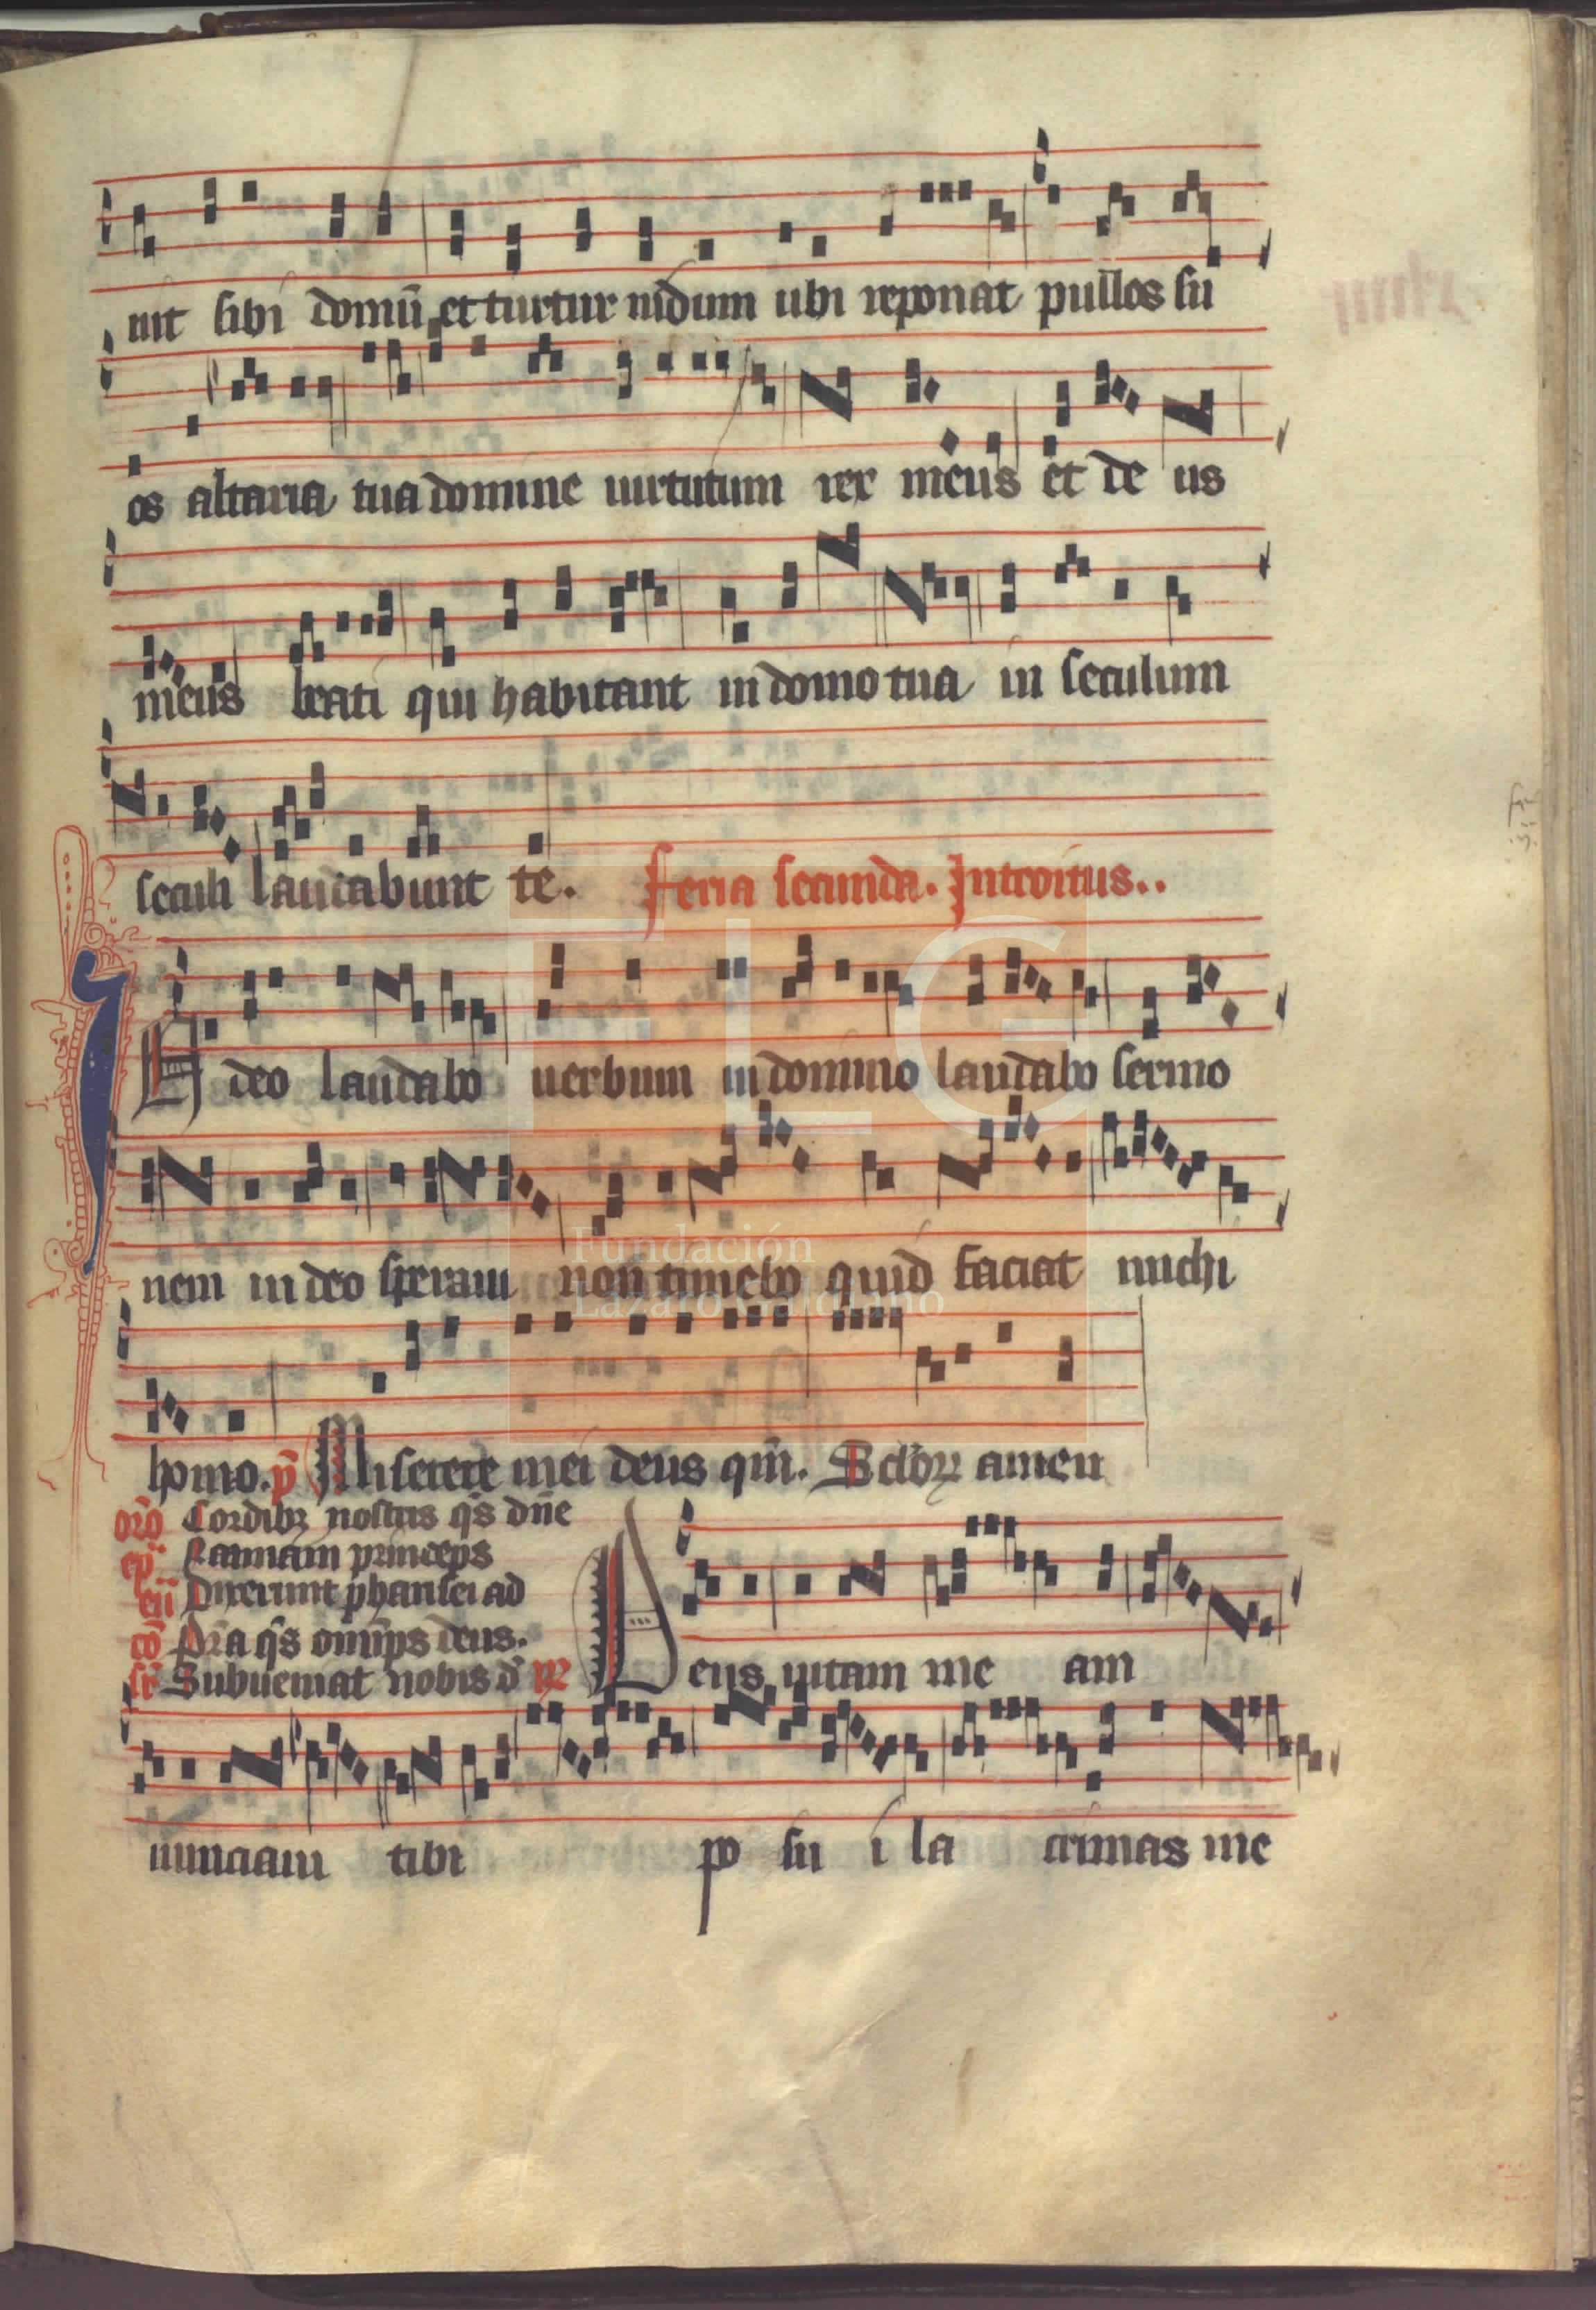 nit sibi domū et turtur nidum ubi reponat pullos su
os altaria tua domine uirtutum rex meus et de us
meus beati qui habitant in domo tua in seculum
seculi laudabunt te. Feria secunda. Introitus..
IN deo laudabo uerbum in domino laudabo sermo
nem in deo speraui non timebo quid faciat michi
homo. p̄ Miserere mei deus qm̄. Sclōꝝ amen
orō Cordibꝫ nostris qs̄ dn̄e
ep̄ Cannam princeps
eū Dixerunt pharisei ad
cō Pr̄a qs̄ omīps deus.
Subueniat nobis d̄
Deus uitam me am
nunciaui tibi po su i la crimas me
FLG
Fundación
Lázaro Galdiano